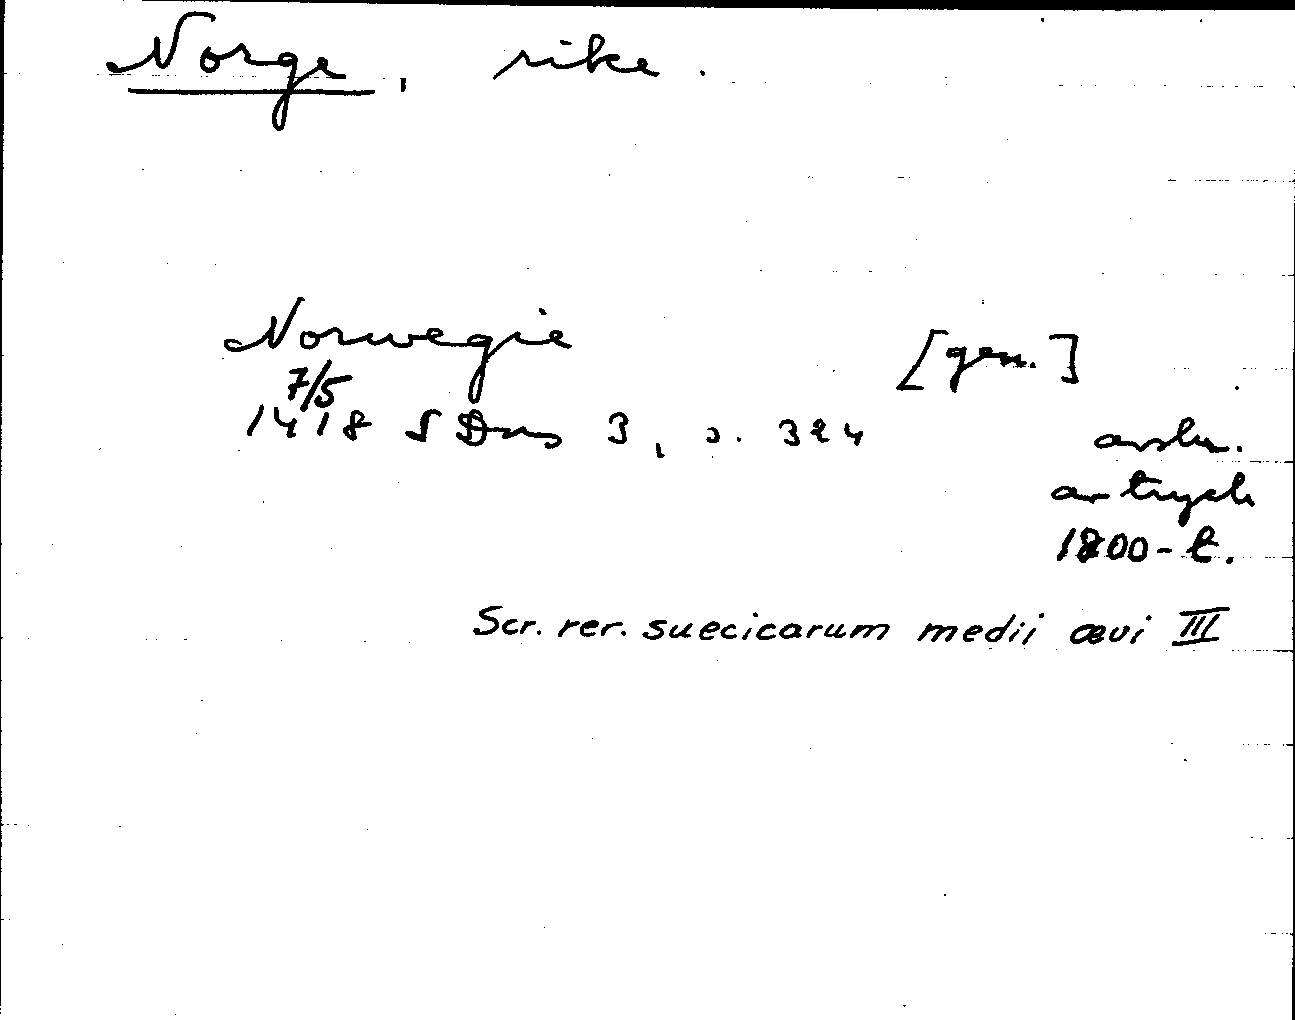 Norge, rike.
Norwegie [gen.]
7/5
1418 SDns 3, s. 324
avskr.
av tryck
1800-t.
Scr. rer. suecicarum medii ævi III